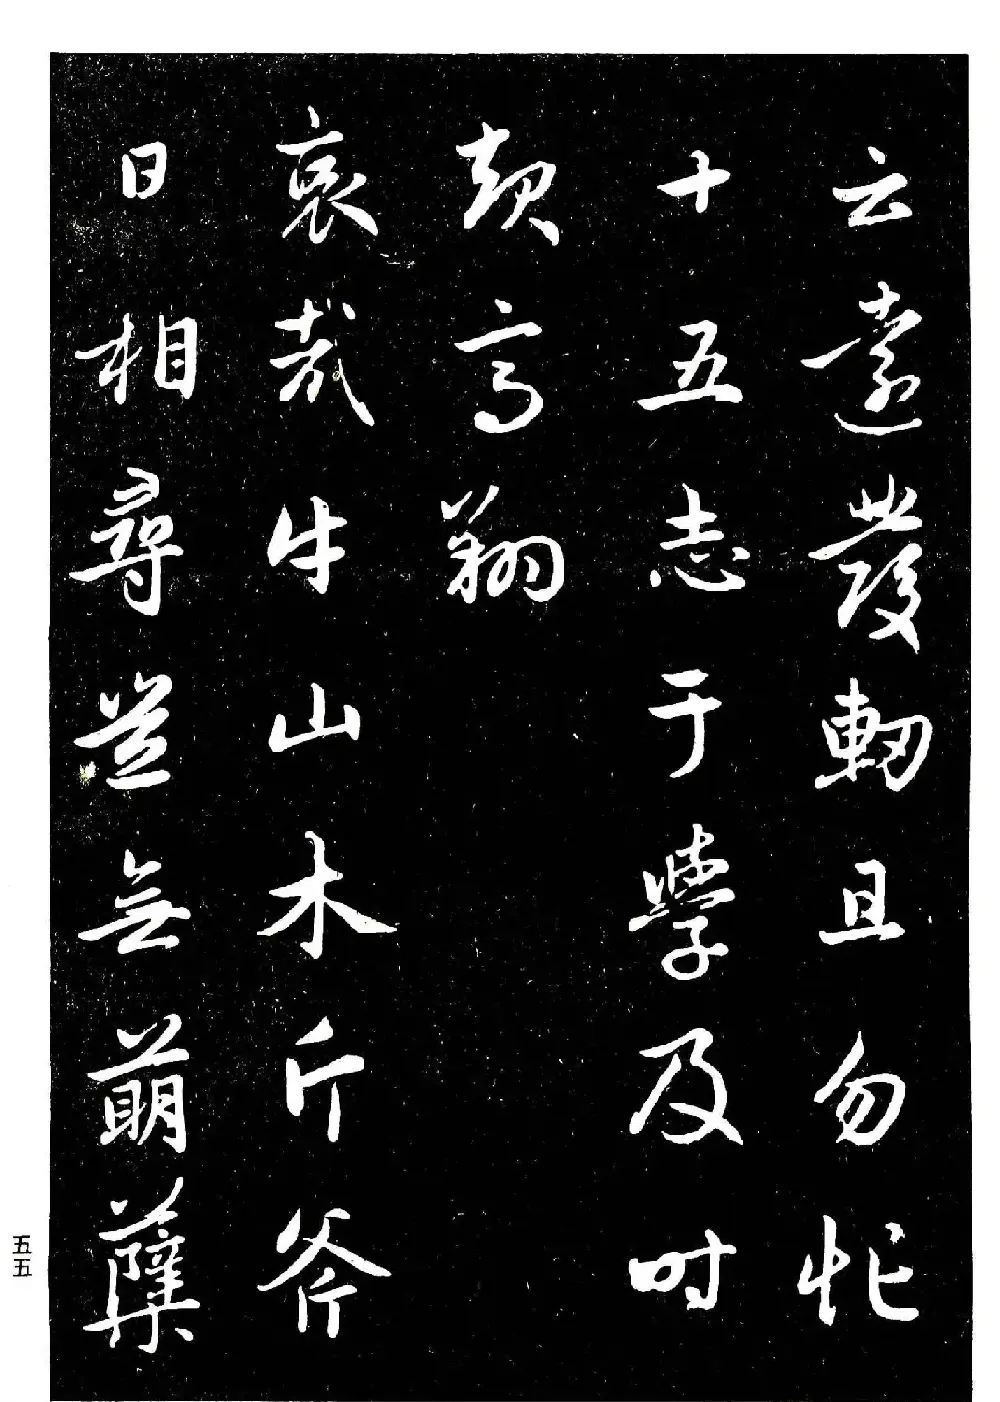 云遠發軔且勿忙
十五志于學及时
起高翔
哀哉牛山木斤斧
日相尋豈無萌蘖
五五